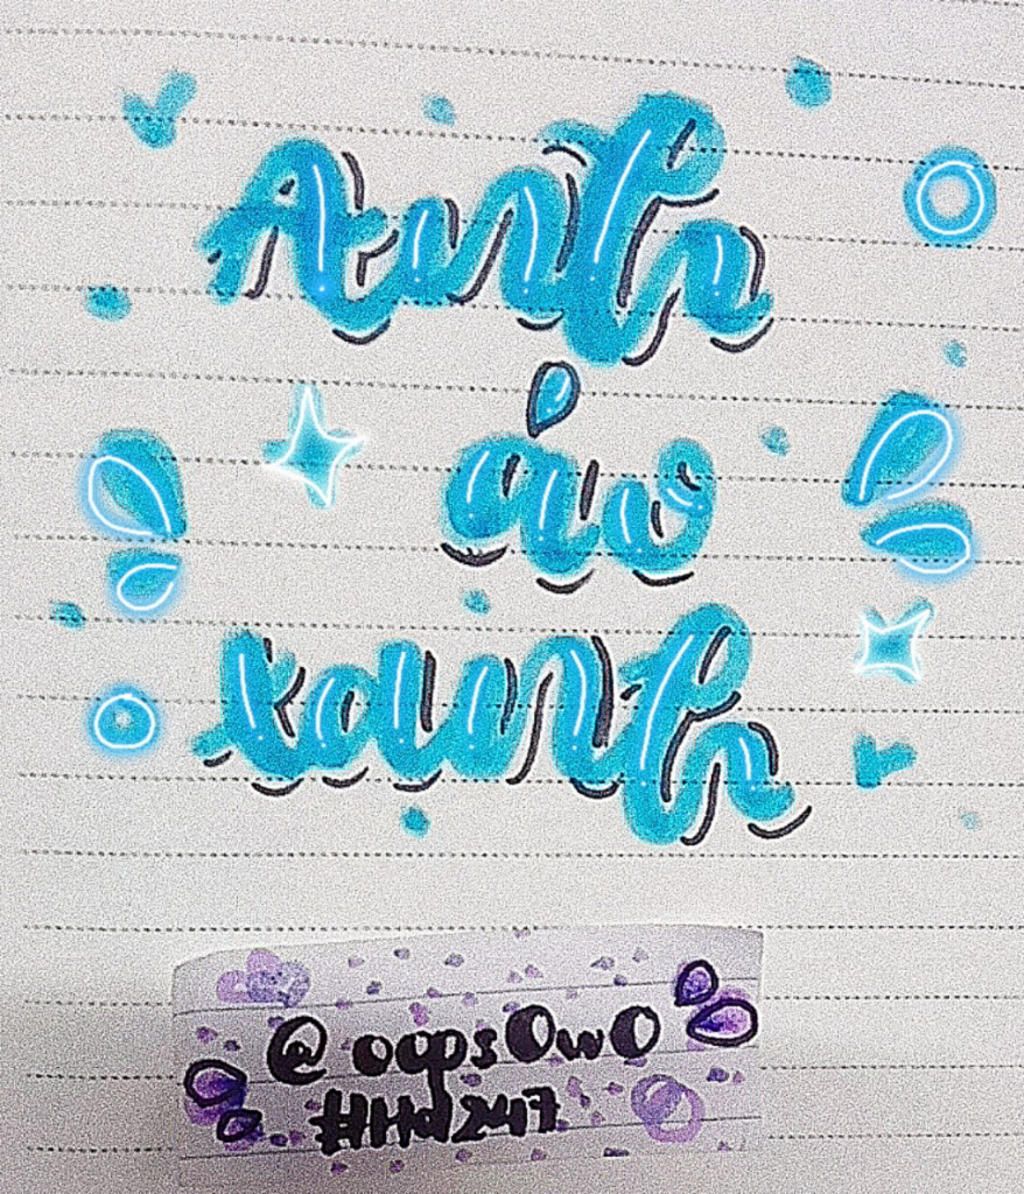 Anh
áo
xanh
@oopsOwO
#Hd247